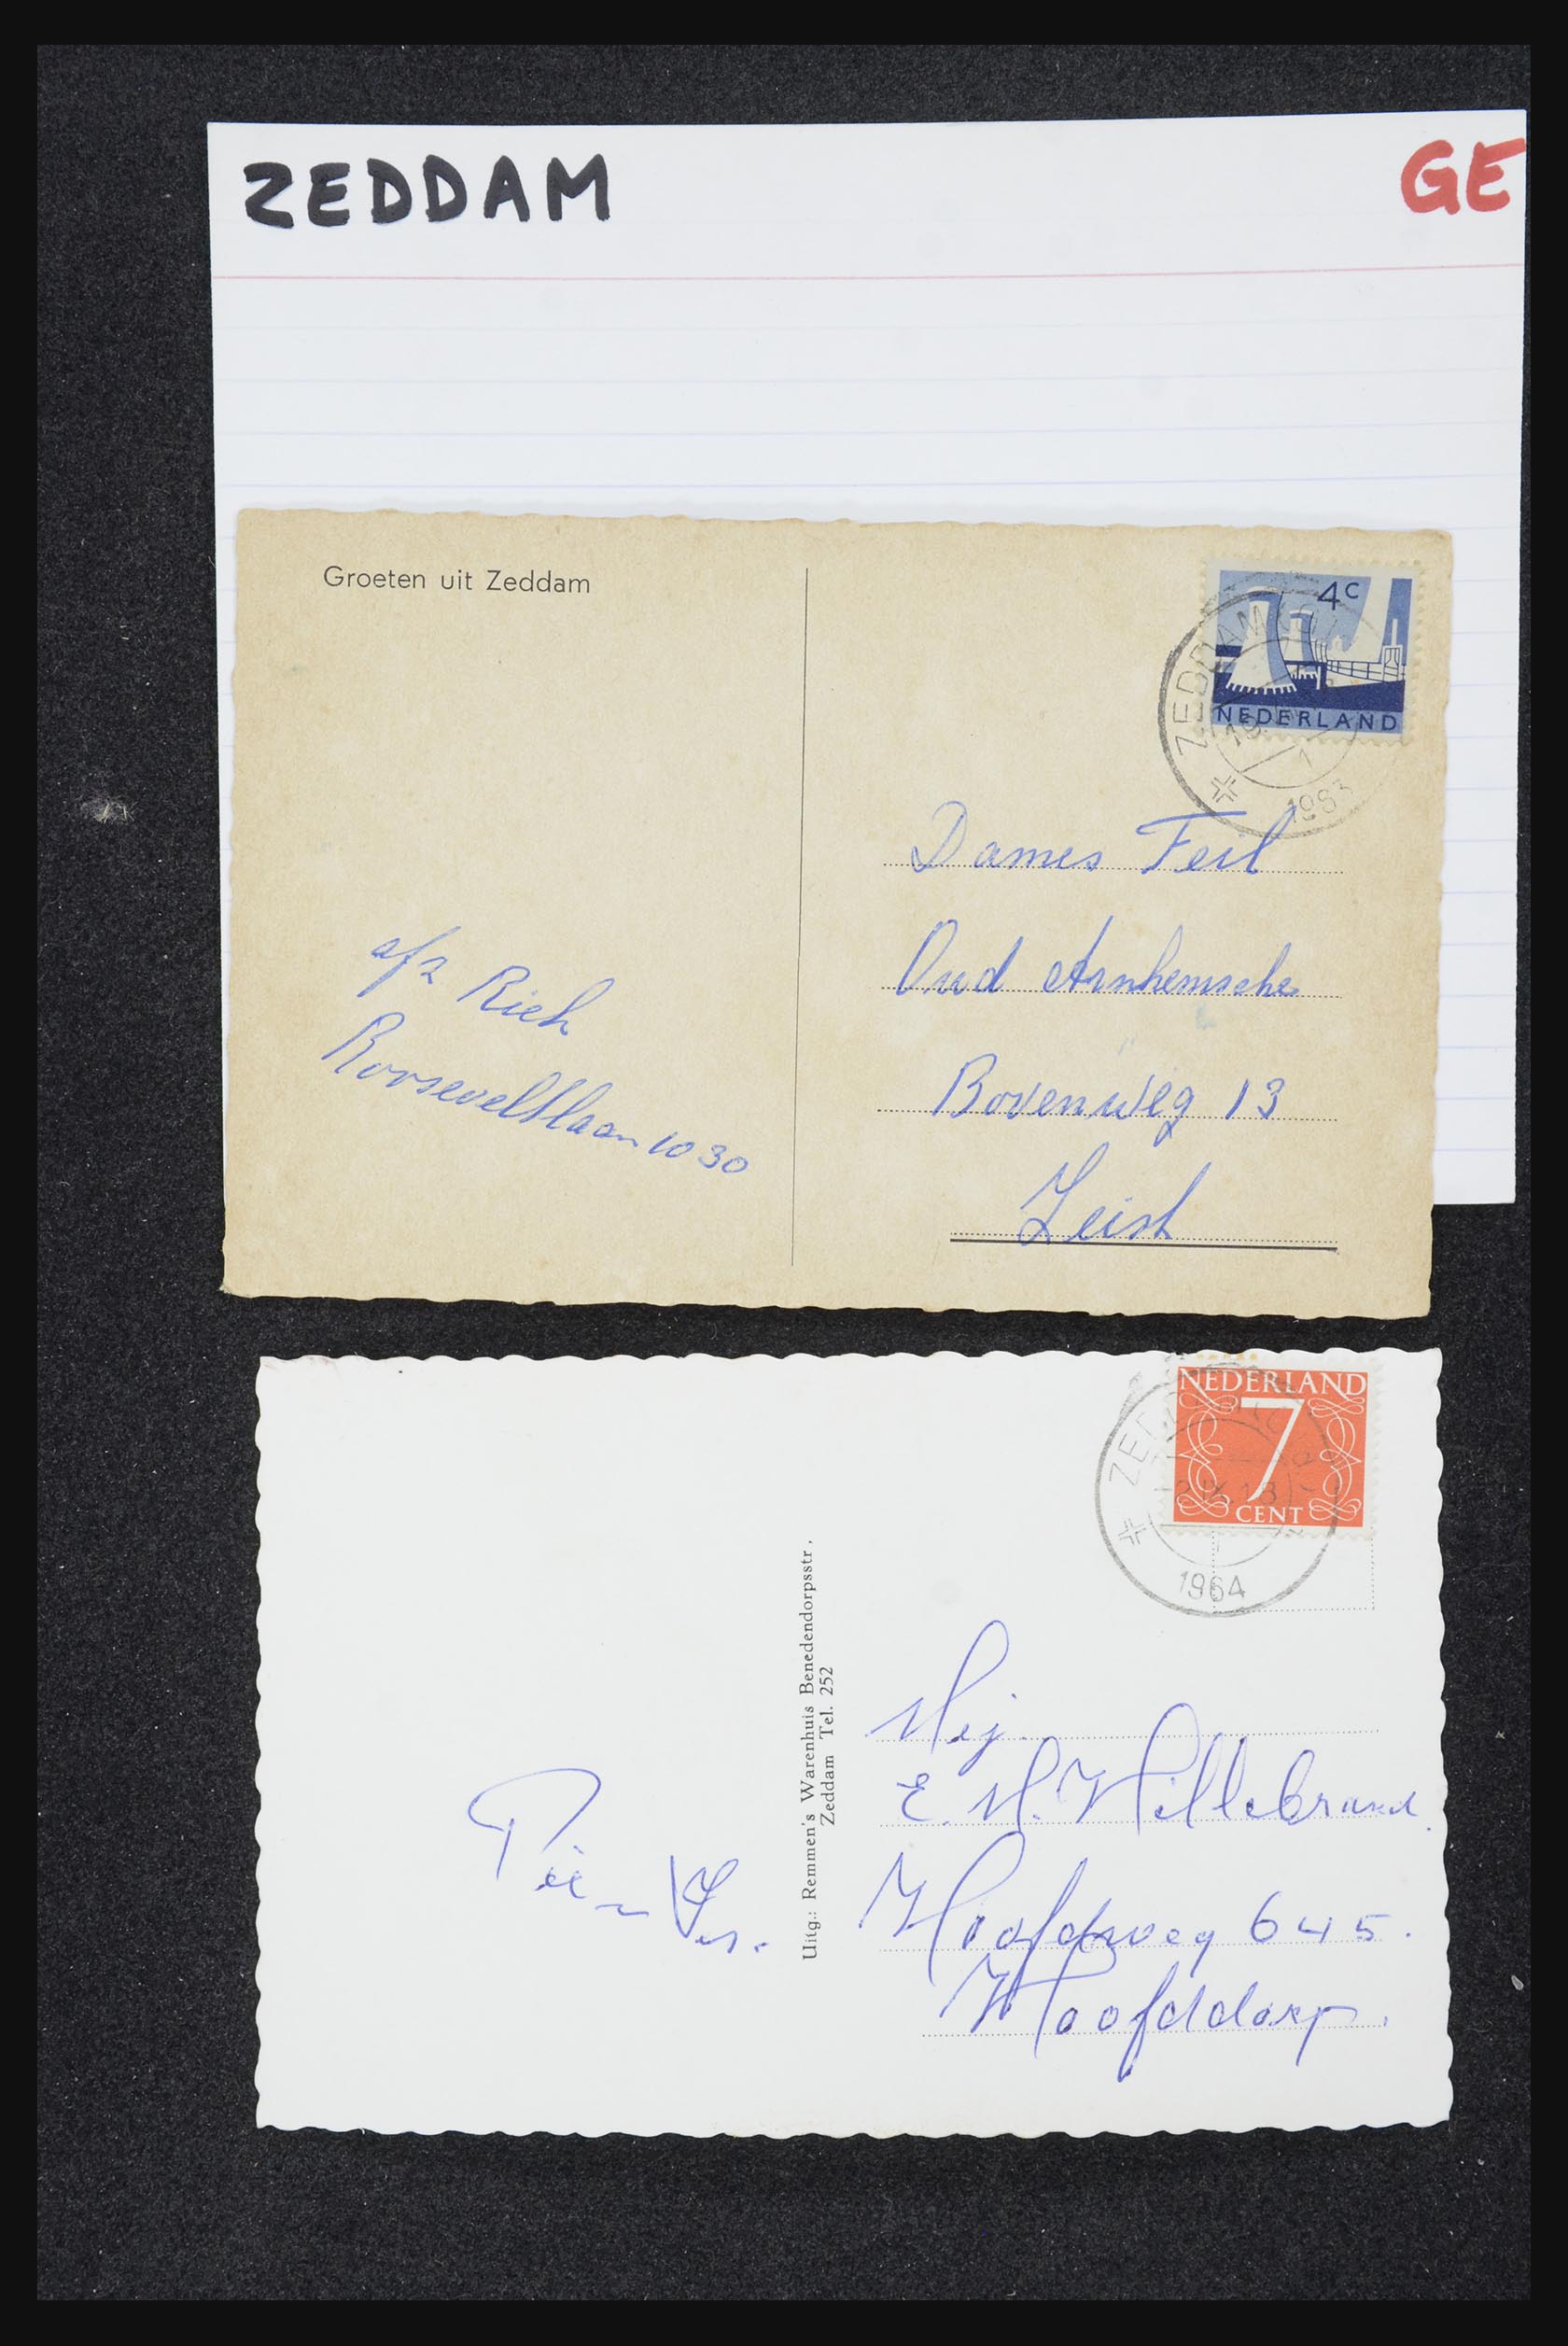 ZEDDAM GE
Groeten uit Zeddam
4c
NEDERLAND
ZEDDAM
1963
Dames Feil
Oud Arnhemsche
Bovenweg 13
Zeist
afz Rieh
Rooseveltlaan 1030
NEDERLAND
7
CENT
1964
Uitg.: Remmen's Warenhuis Benedendorpsstr.
Zeddam Tel. 252
Mej.
E. M. Hillebrand.
Hoofdweg 645.
Hoofddorp.